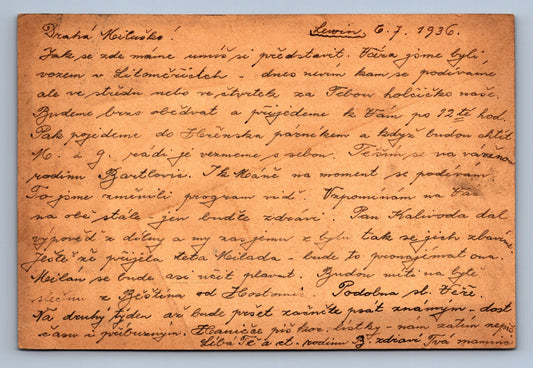 Drahá Miluško! Lewin 6.7.1936.
Jak se zde máme umíš si představit. Včera jsme byli
vozem v Litoměřicích - dnes nevím kam se podíváme
ale ve středu nebo ve čtvrtek za Tebou holčičko naše.
Budeme brzo obědvat a přijedeme k Vám po 12té hod.
Pak pojedeme do Hřenska parníkem a když budou chtít
M. a g. rádi je vezmeme s sebou. Těším se na váženou
rodinu Bartlovic. I k Máně na moment se podívám.
To jsme změnili program viď. Vzpomínám na Vás
na obě stále - jen buďte zdraví. Pan Kalivoda dal
výpověď z dílny a my zas jemu z bytu tak se jich zbavíme.
Ještě že přijela teta Milada - bude to pronajímat ona.
Milán se bude asi učit plavat. Budou míti na bytě
slečnu z Běština od Hostomic Podolna sl. Věře.
Na druhý týden až bude pršet začněte psát známým - dost
času i příbuzným. Haničce piš kor. lístky - nám zatím nepiš
Líbá Tě a ct. rodinu B. zdraví Tvá maminka